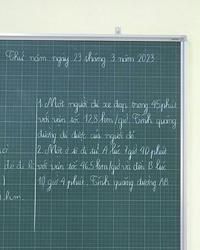 Thứ năm ngày 23 tháng 3 năm 2023
1. Một người đi xe đạp trong 45 phút
với vận tốc 12,8 km/giờ. Tính quãng
đường đi được của người đó.
2. Một ô tô đi từ A lúc 7 giờ 10 phút
với vận tốc 46,5 km/giờ và đến B lúc
10 giờ 4 phút. Tính quãng đường AB.
km.